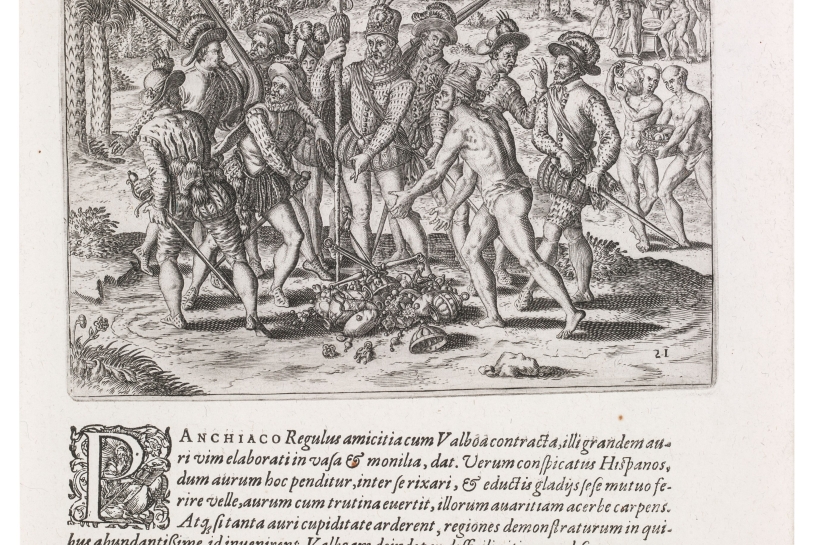 21
PANCHIACO Regulus amicitia cum Valboa contracta, illi grandem au-
ri vim elaborati in vasa & monilia, dat. Verum conspicatus Hispanos,
dum aurum hoc penditur, inter se rixari, & eductis gladijs sese mutuo fe-
rire velle, aurum cum trutina evertit, illorum avaritiam acerbe carpens.
Atq, si tanta auri cupiditate arderent, regiones demonstraturum in qui-
bus abundantissime id invenirent. Valboam deinde